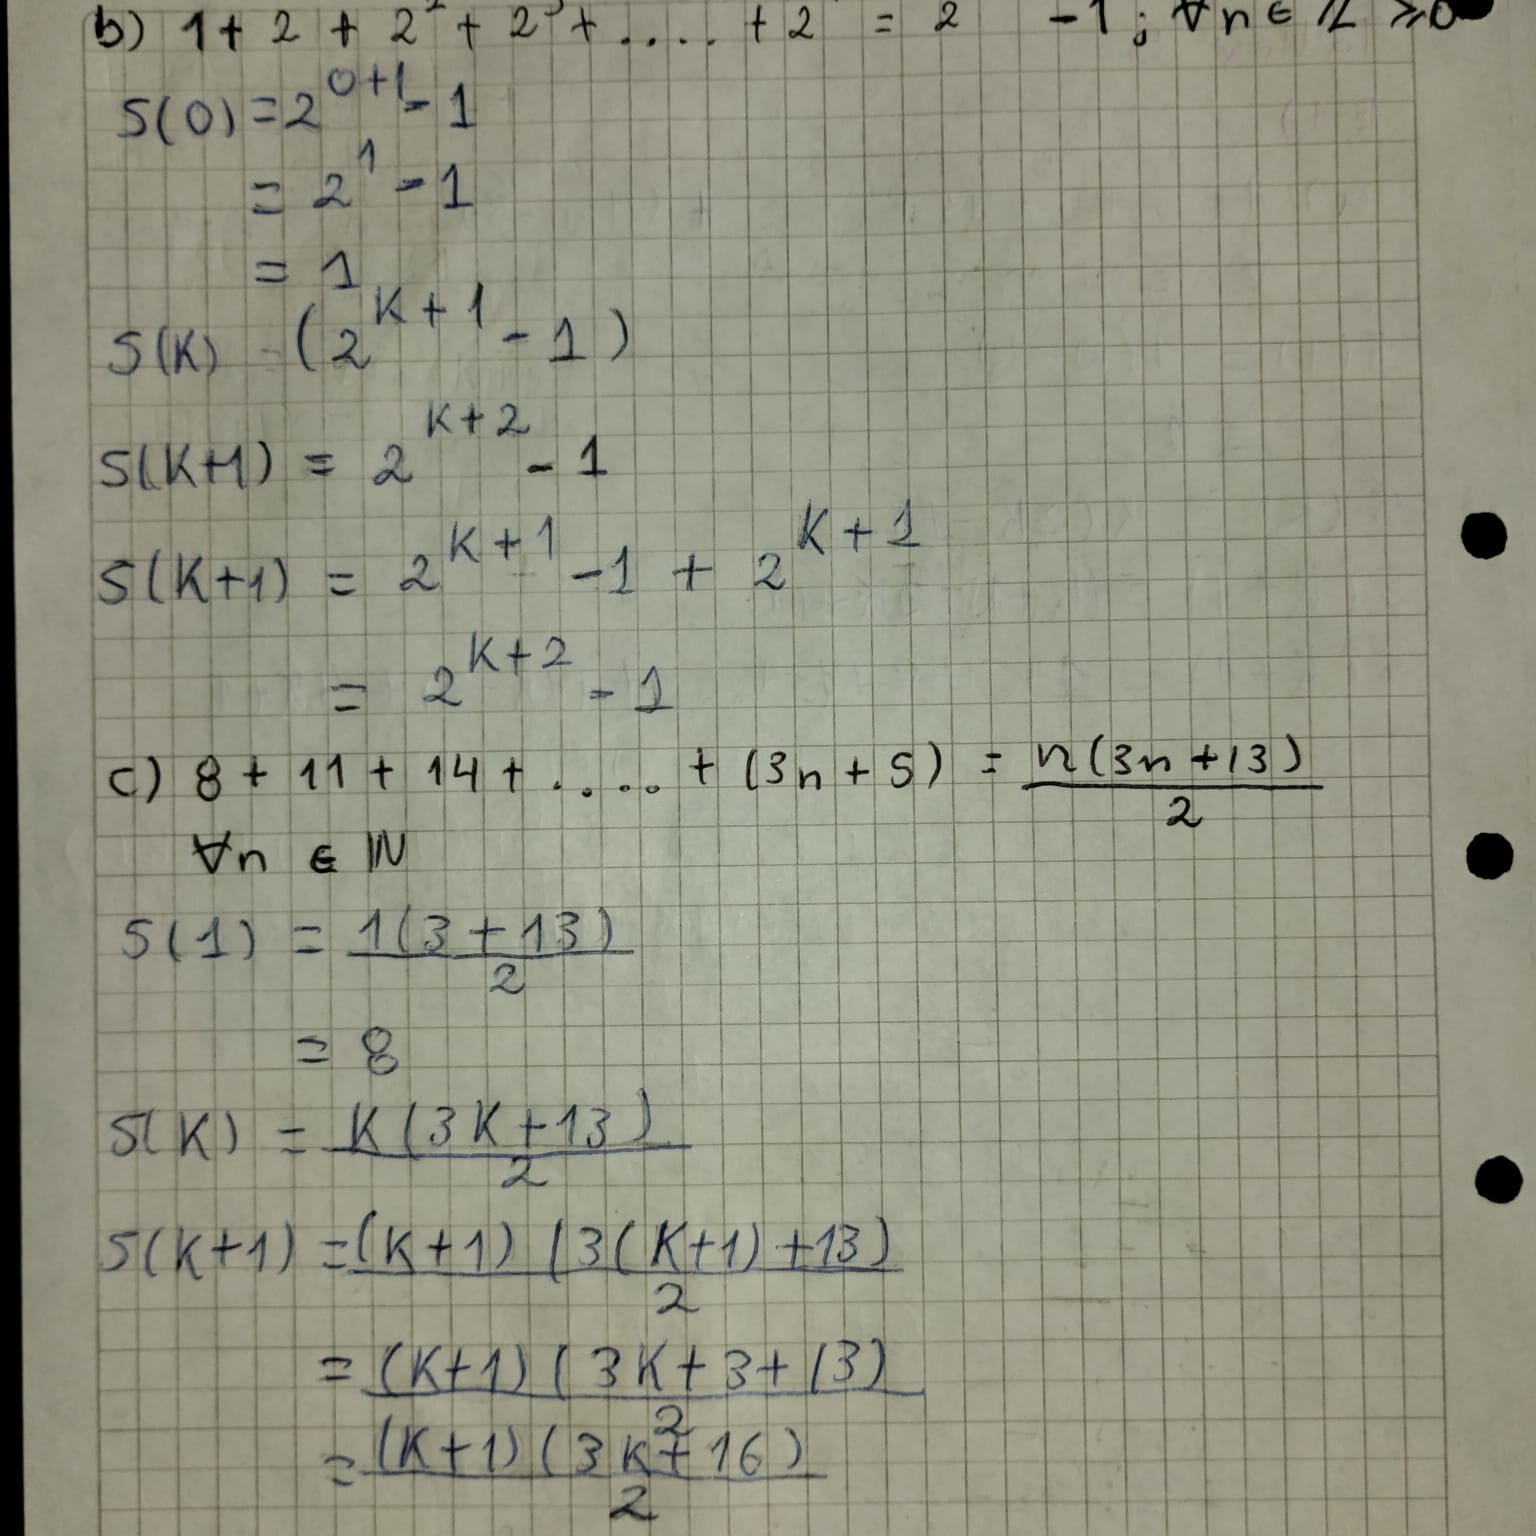 b) 1 + 2 + 2² + 2³ + .... + 2 = 2 -1 ; ∀n ∈ ℤ ≥0
S(0) = 2^{0+1} - 1
= 2^1 - 1
= 1
S(K) (2^{K+1} - 1)
S(K+1) = 2^{K+2} - 1
S(K+1) = 2^{K+1} - 1 + 2^{K+1}
= 2^{K+2} - 1
c) 8 + 11 + 14 + ..... + (3n + 5) = \frac{n(3n+13)}{2}
∀n ∈ ℕ
S(1) = \frac{1(3+13)}{2}
= 8
S(K) = \frac{K(3K+13)}{2}
S(K+1) = \frac{(K+1)(3(K+1)+13)}{2}
= \frac{(K+1)(3K+3+13)}{2}
= \frac{(K+1)(3K+16)}{2}